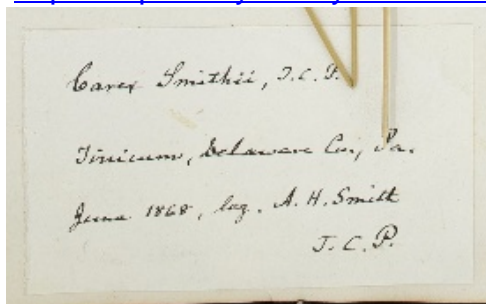 Carex Smithii, T.C.P.
Tinicum, Delaware Co., Pa.
June 1868, leg. A. H. Smith
T. C. P.